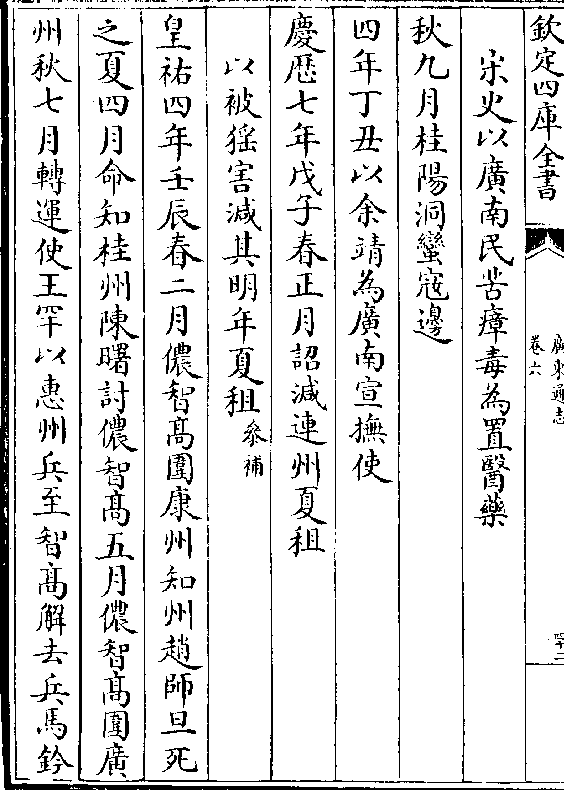 欽定四庫全書
廣東通志
卷六
四十二
宋史以廣南民苦瘴毒為置醫藥
秋九月桂陽洞蠻寇邊
四年丁丑以余靖為廣南宣撫使
慶歷七年戊子春正月詔減連州夏租
以被猺害減其明年夏租
參補
皇祐四年壬辰春二月儂智髙圍康州知州趙師旦死
之夏四月命知桂州陳曙討儂智髙五月儂智髙圍廣
州秋七月轉運使王罕以惠州兵至智髙解去兵馬鈐